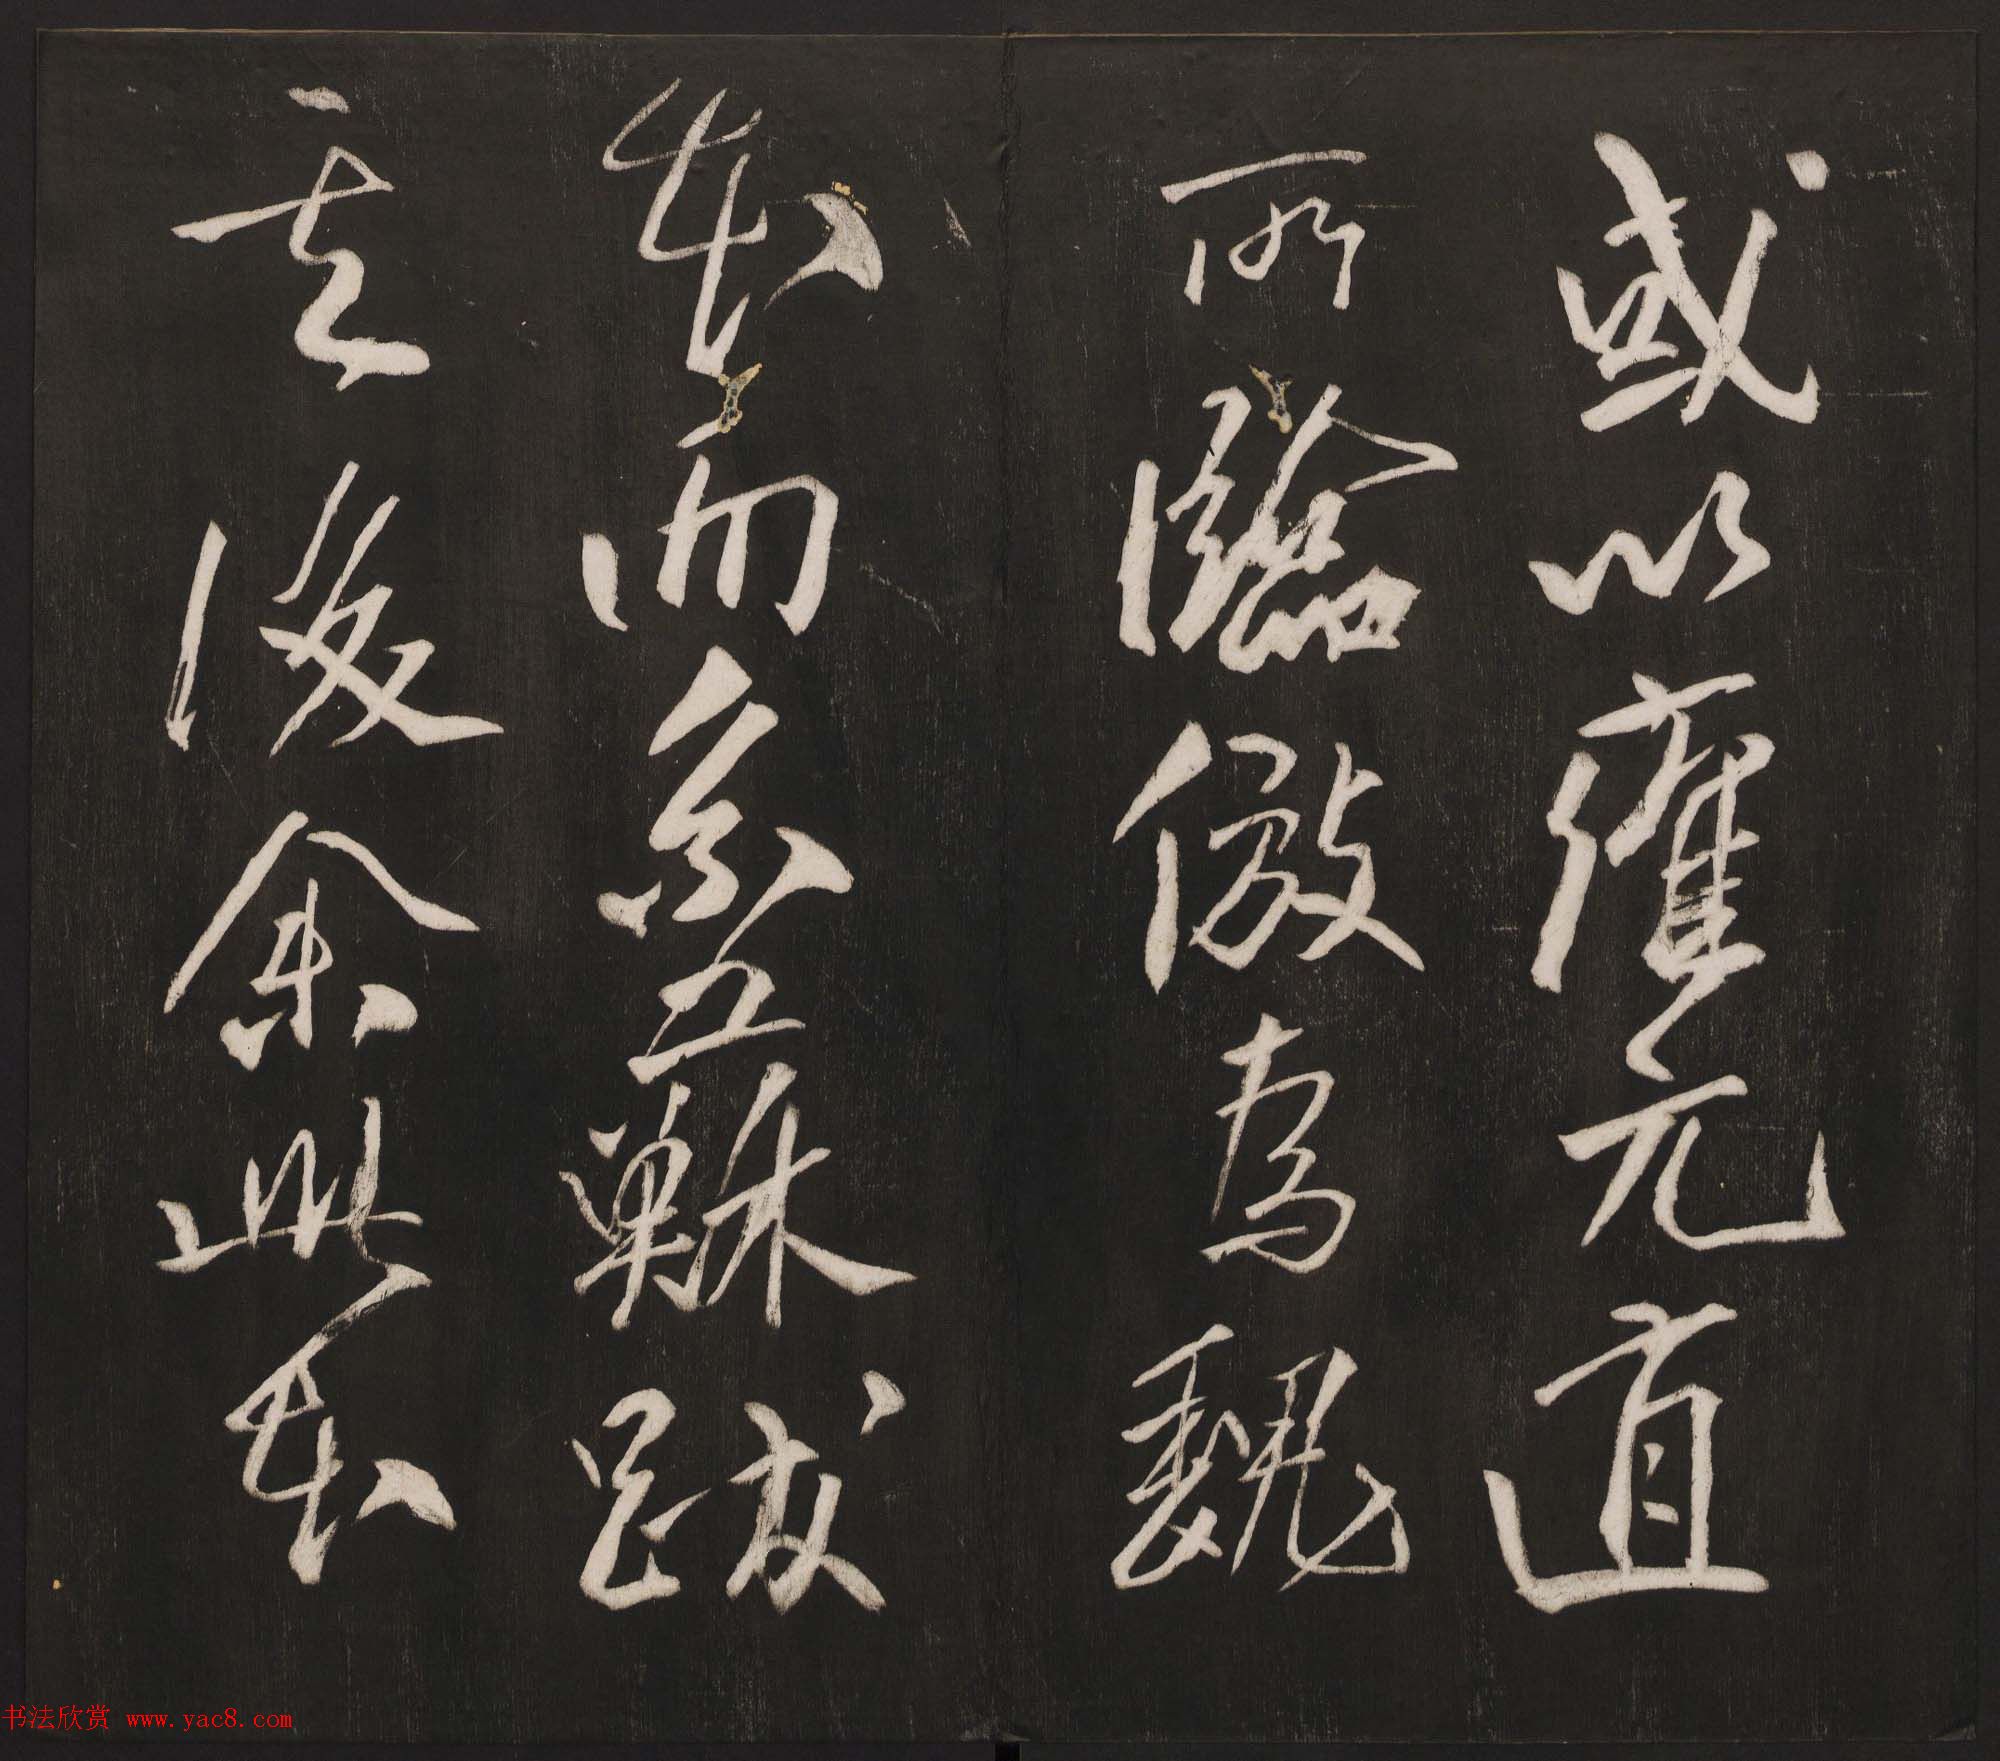 或以雍元直
所臨倣為魏
本而系二蘇跋
其後余此本
书法欣赏 www.yac8.com